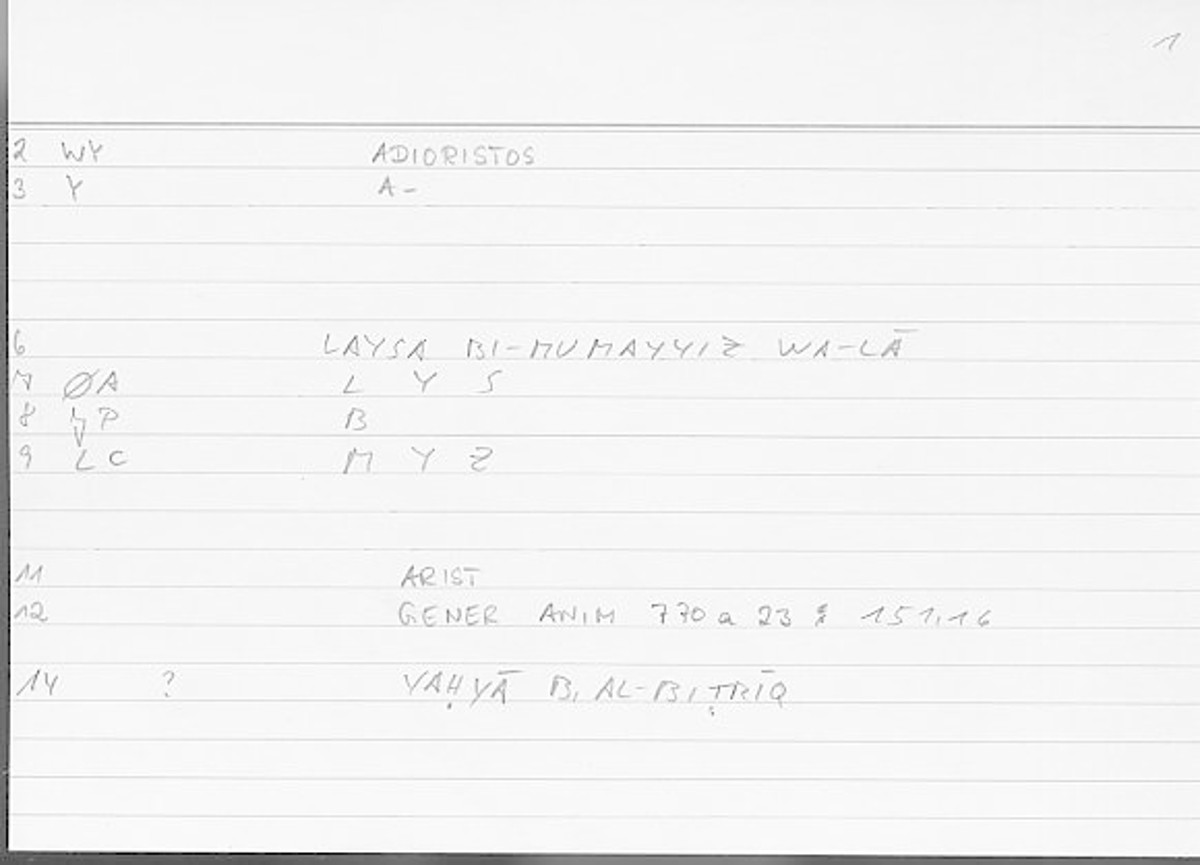 1
2 WY ADIORISTOS
3 Y A-
6 LAYSA BI-MUMAYYIZ WA-LĀ
7 ØA L Y S
8 P B
9 LC M Y Z
11 ARIST
12 GENER ANIM 770 a 23 % 151,16
14 ? YAḤYĀ B. AL-BIṬRĪQ